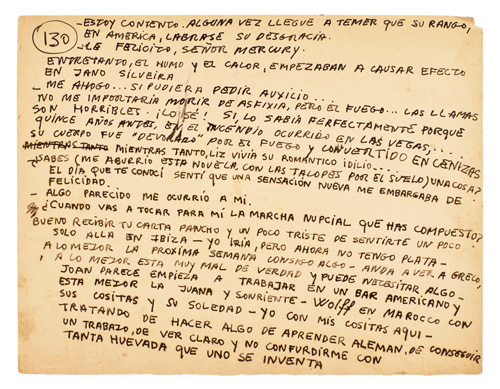 130
- ESTOY CONTENTO. ALGUNA VEZ LLEGUE A TEMER QUE SU RANGO,
EN AMERICA, LABRASE SU DESGRACIA.
- LE FELICITO, SEÑOR MERCURY.
ENTRETANDO, EL HUMO Y EL CALOR, EMPEZABAN A CAUSAR EFECTO
EN JANO SILVEIRA
- ME AHOGO... SI PUDIERA PEDIR AUXILIO...
NO ME IMPORTARIA MORIR DE ASFIXIA, PERO EL FUEGO... LAS LLAMAS
SON HORRIBLES. ¡LO SÉ! SI, LO SABIA PERFECTAMENTE PORQUE
QUINCE AÑOS ANTES, EN EL INCENDIO OCURRIDO EN LAS VEGAS,
SU CUERPO FUE "DEVORADO" POR EL FUEGO Y CONVERTIDO EN CENIZAS
MIENTRAS TANTO MIENTRAS TANTO, LIZ VIVIA SU ROMANTICO IDILIO...
- ¿SABES (ME ABURRIO ESTA NOVELA, CON LAS TALOPES POR EL SUELO) UNA COSA?
EL DIA QUE TE CONOCÍ SENTI QUE UNA SENSACIÓN NUEVA ME EMBARGABA DE
FELICIDAD.
- ALGO PARECIDO ME OCURRIO A MI.
¿CUANDO VAS A TOCAR PARA MI LA MARCHA NUPCIAL QUE HAS COMPUESTO?
BUENO RECIBIR TU CARTA PANCHO Y UN POCO TRISTE DE SENTIRTE UN POCO
SOLO ALLA EN IBIZA - YO IRIA, PERO AHORA NO TENGO PLATA -
A LO MEJOR LA PROXIMA SEMANA CONSIGO ALGO - ANDA A VER A GRECO,
A LO MEJOR ESTA MUY MAL DE VERDAD Y PUEDE NECESITAR ALGO -
JOAN PARECE EMPIEZA A TRABAJAR EN UN BAR AMERICANO Y
ESTA MEJOR LA JUANA Y SONRIENTE - WOLFF EN MAROCCO CON
SUS COSITAS Y SU SOLEDAD - YO CON MIS COSITAS AQUI -
TRATANDO DE HACER ALGO DE APRENDER ALEMAN, DE CONSEGUIR
UN TRABAJO, DE VER CLARO Y NO CONFURDIRME CON
TANTA HUEVADA QUE UNO SE INVENTA